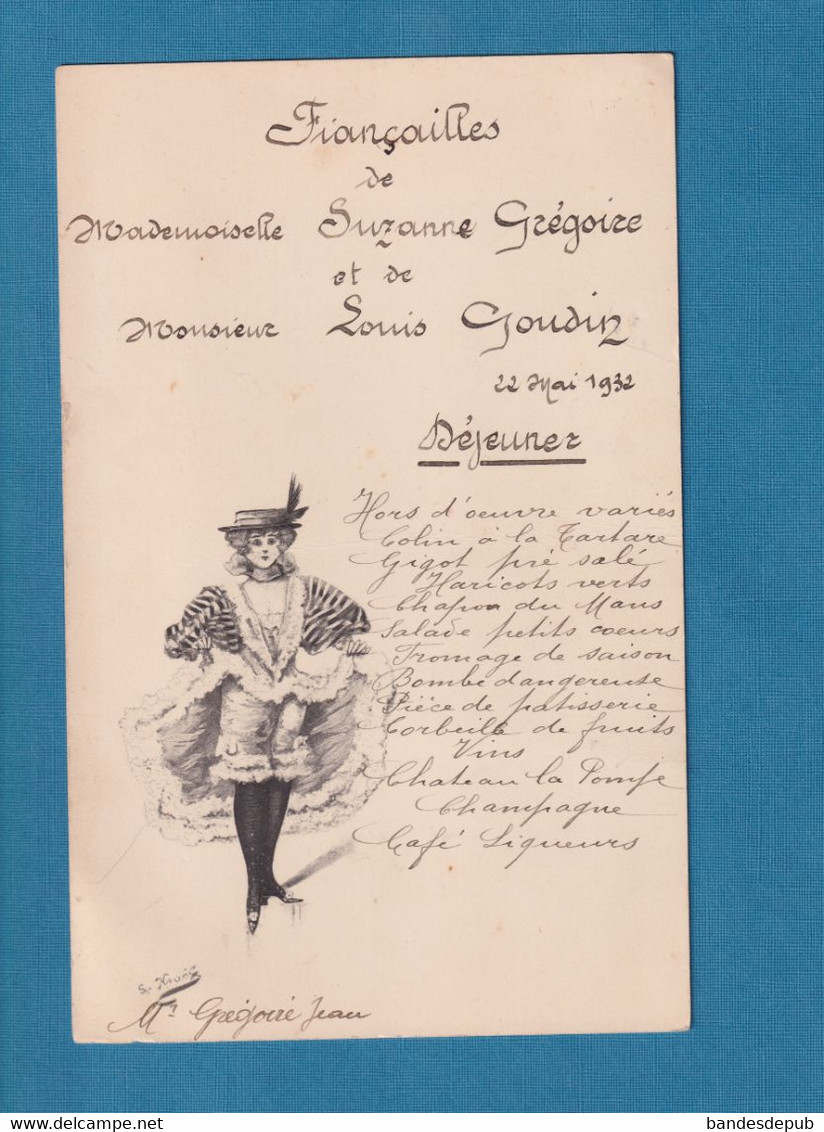 Fiançailles
de
Mademoiselle Suzanne Grégoire
et de
Monsieur Louis Goudin
22 Mai 1932
Déjeuner
Hors d'oeuvre variés
Colin à la Tartare
Gigot pré salé
Haricots verts
Chapon du Mans
Salade petits coeurs
Fromage de saison
Bombe dangereuse
Piëce de patisserie
Corbeille de fruits
Vins
Chateau la Pompe
Champagne
Café Liqueurs
Mr Grégoire Jean
www.delcampe.net
bandesdepub